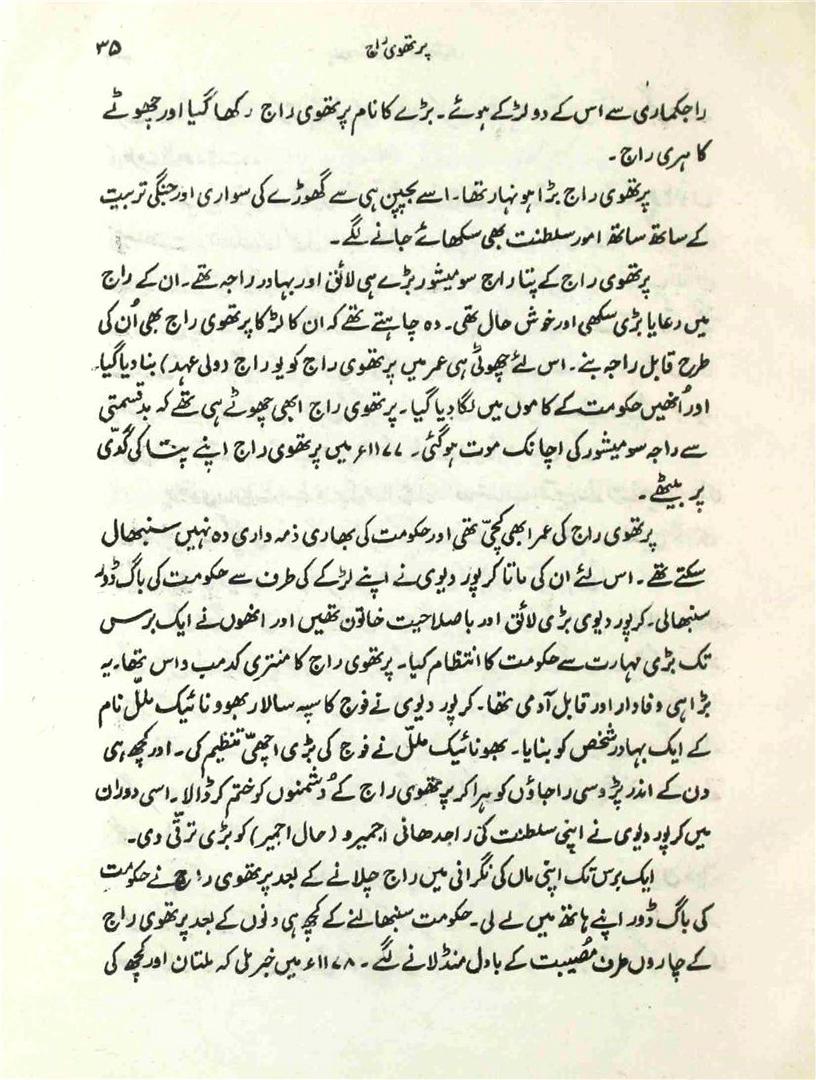 ۳۵
پرتھوی راج
راجکماری سے اس کے دو لڑکے ہوئے۔ بڑے کا نام پرتھوی راج رکھا گیا اور چھوٹے
کا ہری راج۔
پرتھوی راج بڑا ہونہار تھا۔ اسے بچپن ہی سے گھوڑے کی سواری اور جنگی تربیت
کے ساتھ ساتھ امور سلطنت بھی سکھائے جانے لگے۔
پرتھوی راج کے پتا راج سومیشور بڑے ہی لائق اور بہادر راجہ تھے۔ ان کے راج
میں رعایا بڑی سکھی اور خوش حال تھی۔ وہ چاہتے تھے کہ ان کا لڑکا پرتھوی راج بھی اُن کی
طرح قابل راجہ بنے۔ اس لئے چھوٹی ہی عمر میں پرتھوی راج کو یوراج (ولی عہد) بنا دیا گیا۔
اور اُنھیں حکومت کے کاموں میں لگا دیا گیا۔ پرتھوی راج ابھی چھوٹے ہی تھے کہ بدقسمتی
سے راجہ سومیشور کی اچانک موت ہوگئی۔ ۱۱۷۷ء میں پرتھوی راج اپنے پتا کی گدّی
پر بیٹھے۔
پرتھوی راج کی عمر ابھی کچّی تھی اور حکومت کی بھاری ذمہ داری وہ نہیں سنبھال
سکتے تھے۔ اس لئے ان کی ماتا کرپور دیوی نے اپنے لڑکے کی طرف سے حکومت کی باگ ڈور
سنبھالی۔ کرپور دیوی بڑی لائق اور باصلاحیت خاتون تھیں اور انھوں نے ایک برس
تک بڑی مہارت سے حکومت کا انتظام کیا۔ پرتھوی راج کا منتری کدمب واس تھا۔ یہ
بڑا ہی وفادار اور قابل آدمی تھا۔ کرپور دیوی نے فوج کا سپہ سالار بھوونائیک ملّل نام
کے ایک بہادر شخص کو بنایا۔ بھونائیک ملّل نے فوج کی بڑی اچھّی تنظیم کی۔ اور کچھ ہی
دن کے اندر پڑوسی راجاؤں کو ہرا کر پرتھوی راج کے دُشمنوں کو ختم کر ڈالا۔ اسی دوران
میں کرپور دیوی نے اپنی سلطنت کی راجدھانی اجمیرو (حال اجمیر) کو بڑی ترقّی دی۔
ایک برس تک اپنی ماں کی نگرانی میں راج چلانے کے بعد پرتھوی راج نے حکومت
کی باگ ڈور اپنے ہاتھ میں لے لی۔ حکومت سنبھالنے کے کچھ ہی دنوں کے بعد پرتھوی راج
کے چاروں طرف مُصیبت کے بادل منڈلانے لگے۔ ۱۱۷۸ء میں خبر ملی کہ ملتان اور کچھ کی